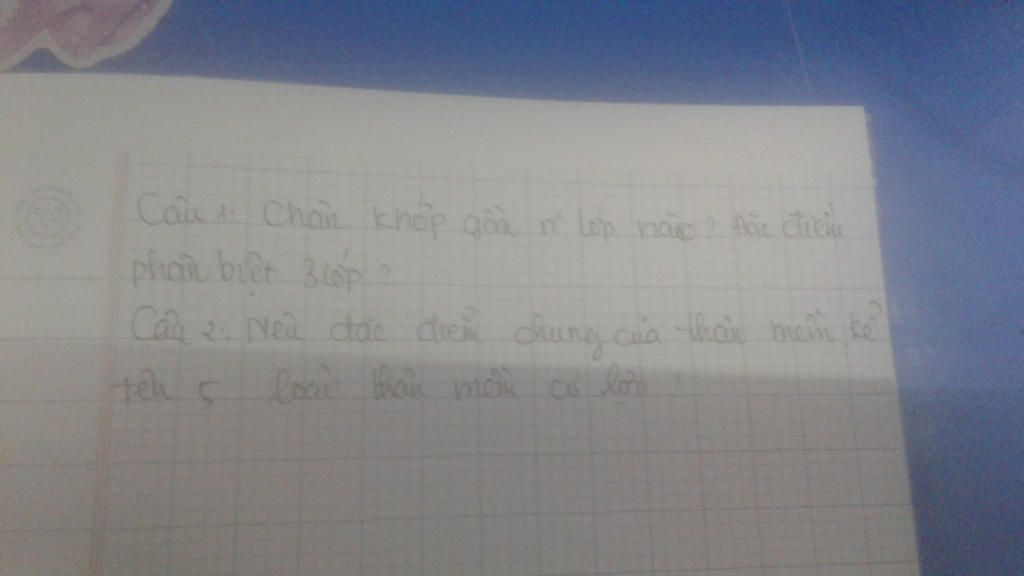 Câu 1: Chân khớp gồm n~ lớp nào? Đặc điểm
phân biệt 3 lớp?
Câu 2: Nêu đặc điểm chung của thân mềm kể
tên 5 loài thân mềm có lợi?